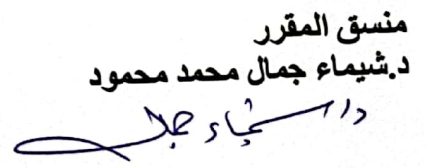 منسق المقرر
د.شيماء جمال محمد محمود
د/ شيماء جمال